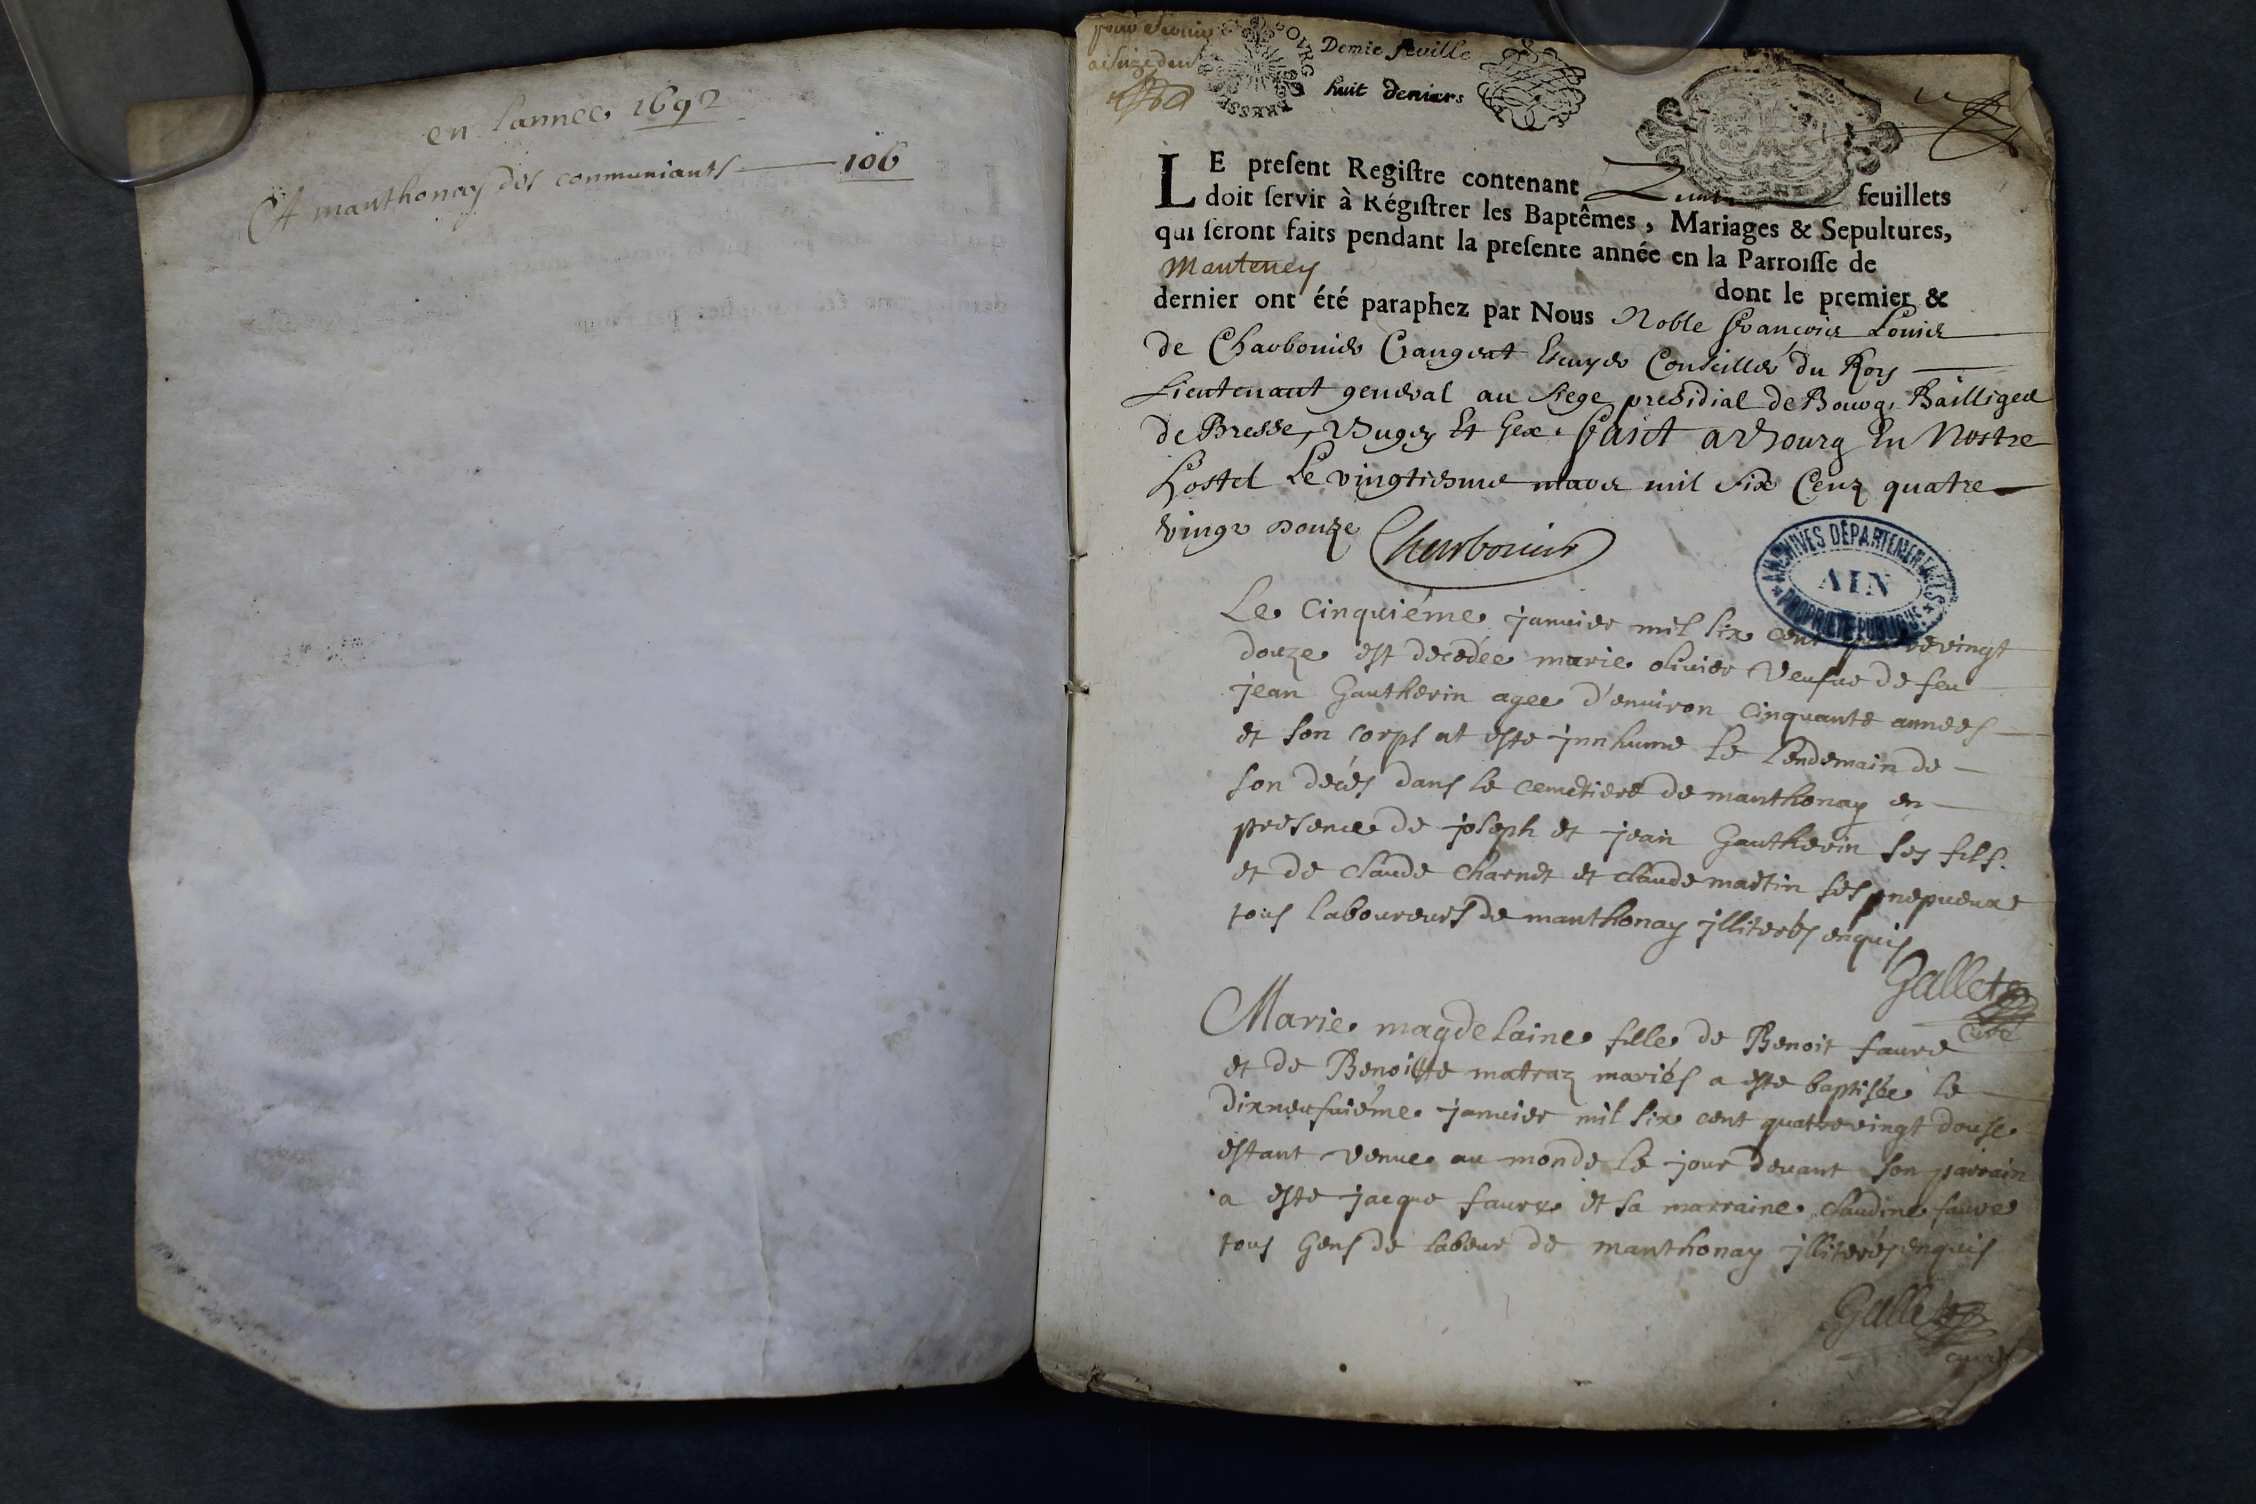 en l'annee 1692
A manthonay des communiants — 106
BOVRG
BRESSE
Demie feuille
huit deniers
LE preſent Regiſtre contenant feuillets
doit ſervir à Régiſtrer les Baptêmes, Mariages & Sepultures,
qui ſeront faits pendant la preſente année en la Parroiſſe de
Manteney dont le premier &
dernier ont été paraphez par Nous Noble François Louis
de Charbonier Crangeat Escuyer Conseiller du Roy
Lieutenant general au Siege presidial de Bourg, Bailliage
de Bresse, Bugey Et Gex. Faict a Bourg En Nostre
hostel Le vingtiesme mars mil six Cenz quatre
vingt douze Charbonier
ARCHIVES DÉPARTEMENTALES
AIN
PROPRIÉTÉ PUBLIQUE
Le cinquiéme janvier mil six cent quatrevingt
douze est decedée marie olivier veufue de feu
jean Gautherin agee d'enuiron cinquante annees
et son corps at este jnnhumé le lendemain de
son decés dans le cemetiere de manthonay en
presence de joseph et jean Gautherin ses fils.
et de claude charnet et claude martin ses nepueux
tous laboureurs de manthonay jlliterés enquis
Gallet
curé
Marie magdelaine fille de Benoit faure
et de Benoitte matraz mariés a este baptisée le
dixneufuiéme janvier mil six cent quatrevingt douse
estant venue au monde le jour deuant son parrain
a este jacque faure et sa marraine claudine faure
tous gens de labeur de manthonay jlliterés enquis
Gallet
curé